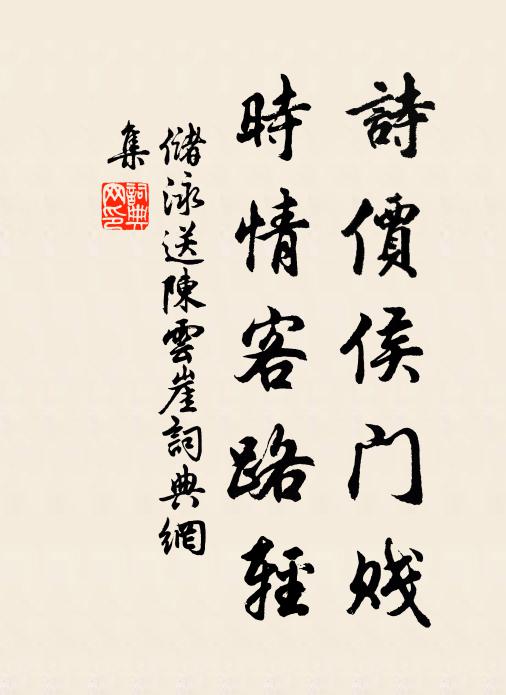 詩價侯門賤
時情客路輕
儲泳送陳雲崖詞典網
集
詞典
网印